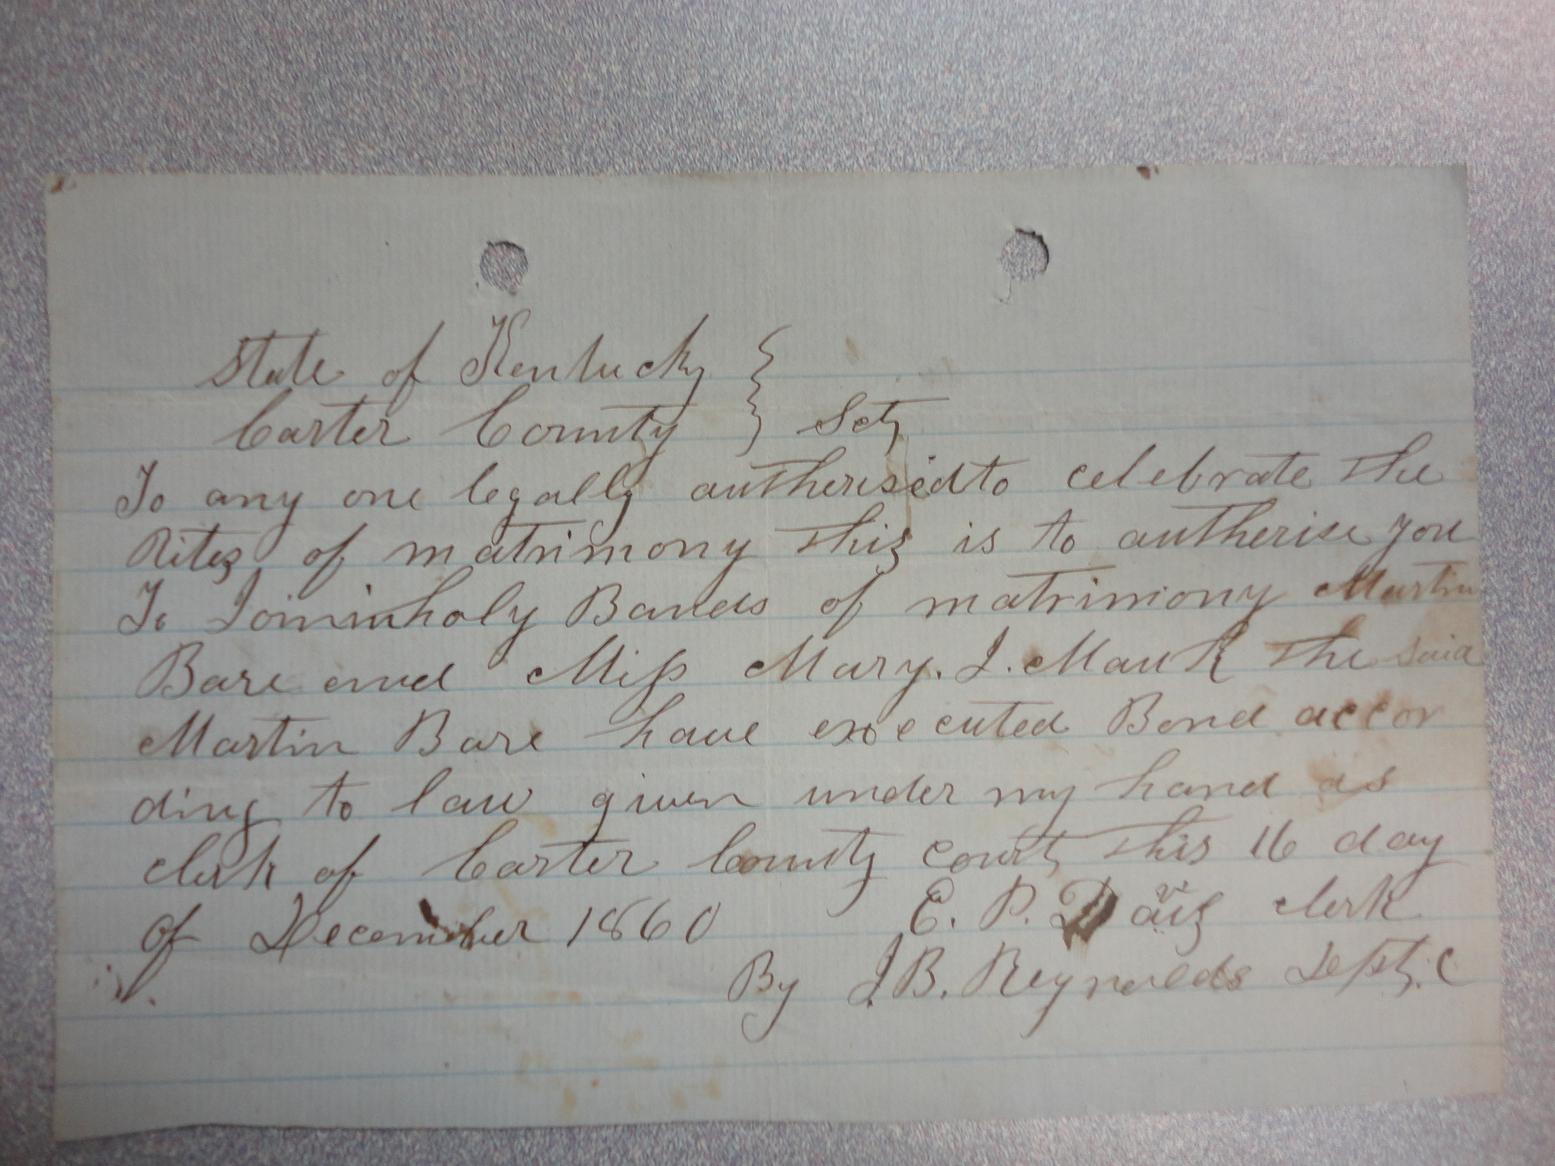 State of Kentucky }
Carter County } Sct
To any one legally autherised to celebrate the
Rites of matrimony this is to autherise you
To Join in holy Bands of matrimony Martin
Bare and Miss Mary. J. Mauk the said
Martin Bare have executed Bond accor
ding to law given under my hand as
clerk of Carter County court this 16 day
of December 1860 E. P. Davis clerk
By J B. Reynolds Dept. C